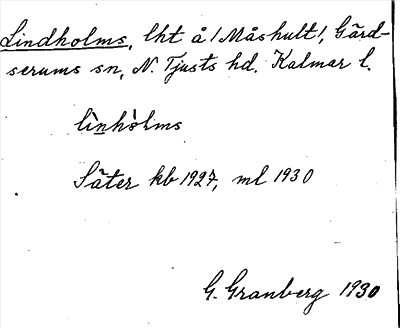 Lindholms, lht å /Måshult/, Gärd-
serums sn, N. Tjusts hd. Kalmar l.
lìnhòlms
Säter kb 1927, ml 1930
G. Granberg 1930